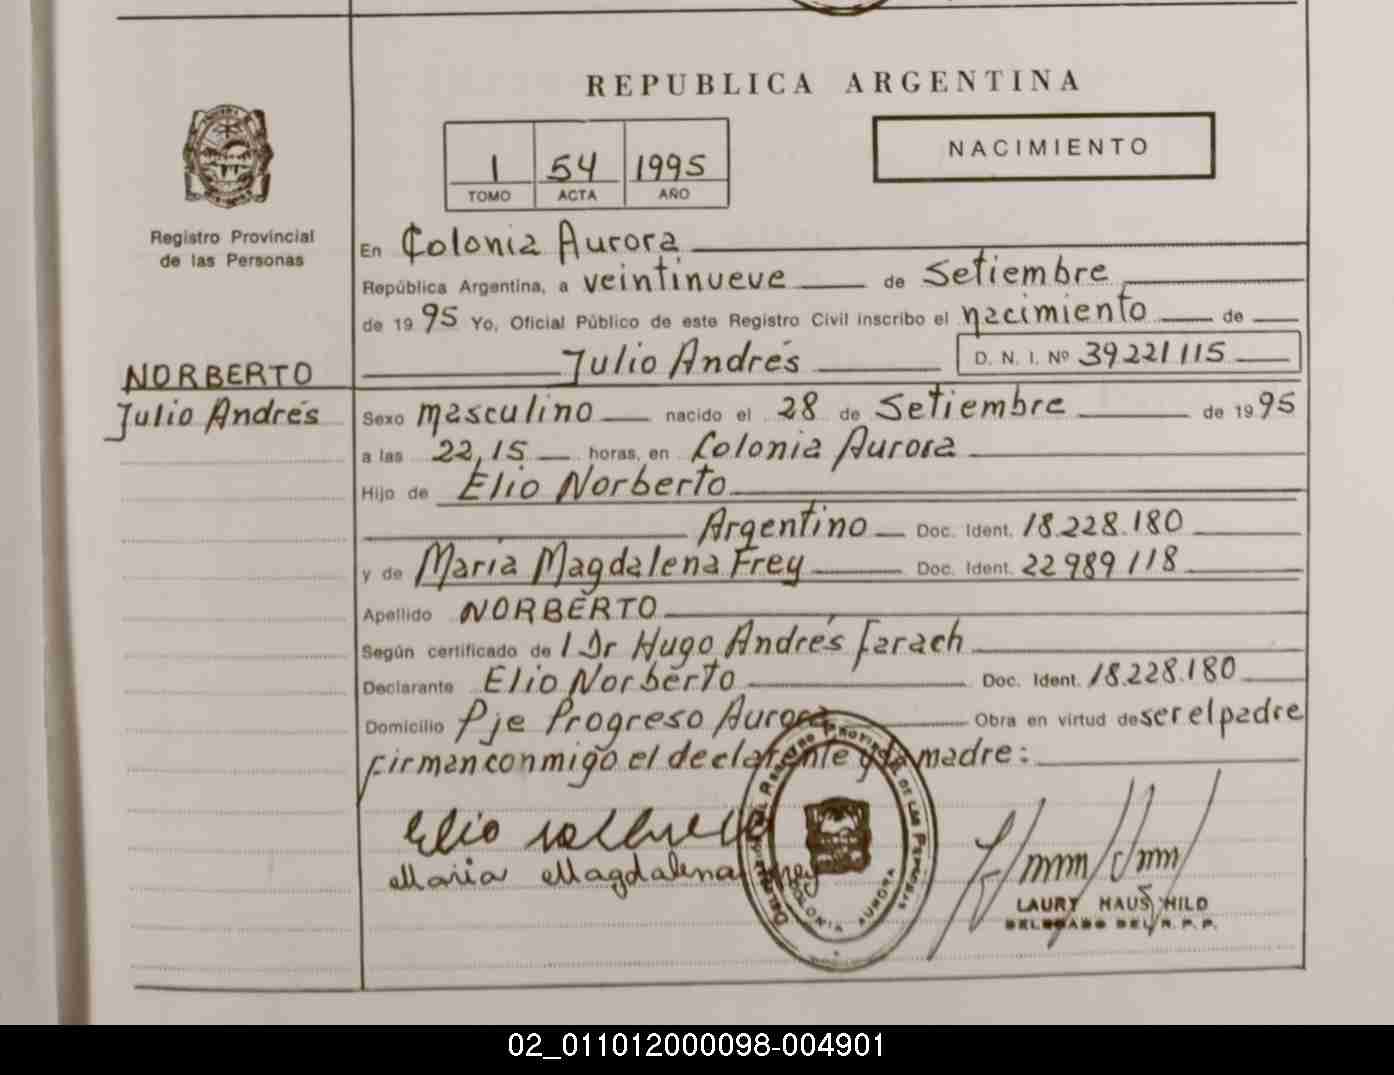 REPUBLICA ARGENTINA
1 54 1995
TOMO ACTA AÑO
NACIMIENTO
Registro Provincial
de las Personas
NORBERTO
Julio Andrés
En Colonia Aurora
República Argentina, a veintinueve de Setiembre
de 1995 Yo, Oficial Público de este Registro Civil inscribo el nacimiento de
Julio Andrés D. N. I. Nº 39221115
Sexo masculino nacido el 28 de Setiembre de 1995
a las 22,15 horas, en Colonia Aurora
Hijo de Elio Norberto
Argentino Doc. Ident. 18.228.180
y de Maria Magdalena Frey Doc. Ident. 22989118
Apellido NORBERTO
Según certificado de l Dr Hugo Andrés Farach
Declarante Elio Norberto Doc. Ident. 18.228.180
Domicilio Pje Progreso Aurora Obra en virtud de ser el padre
firman conmigo el declarante y la madre:
Elio
Maria Magdalena Frey
COLONIA AURORA
LAURY HAUSCHILD
DELEGADO DEL R. P. P.
02_011012000098-004901